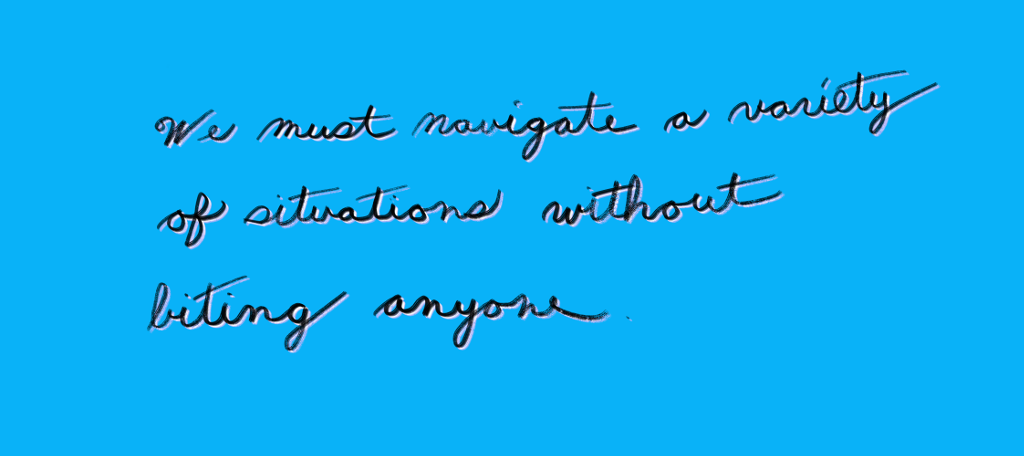 We must navigate a variety
of situations without
biting anyone.